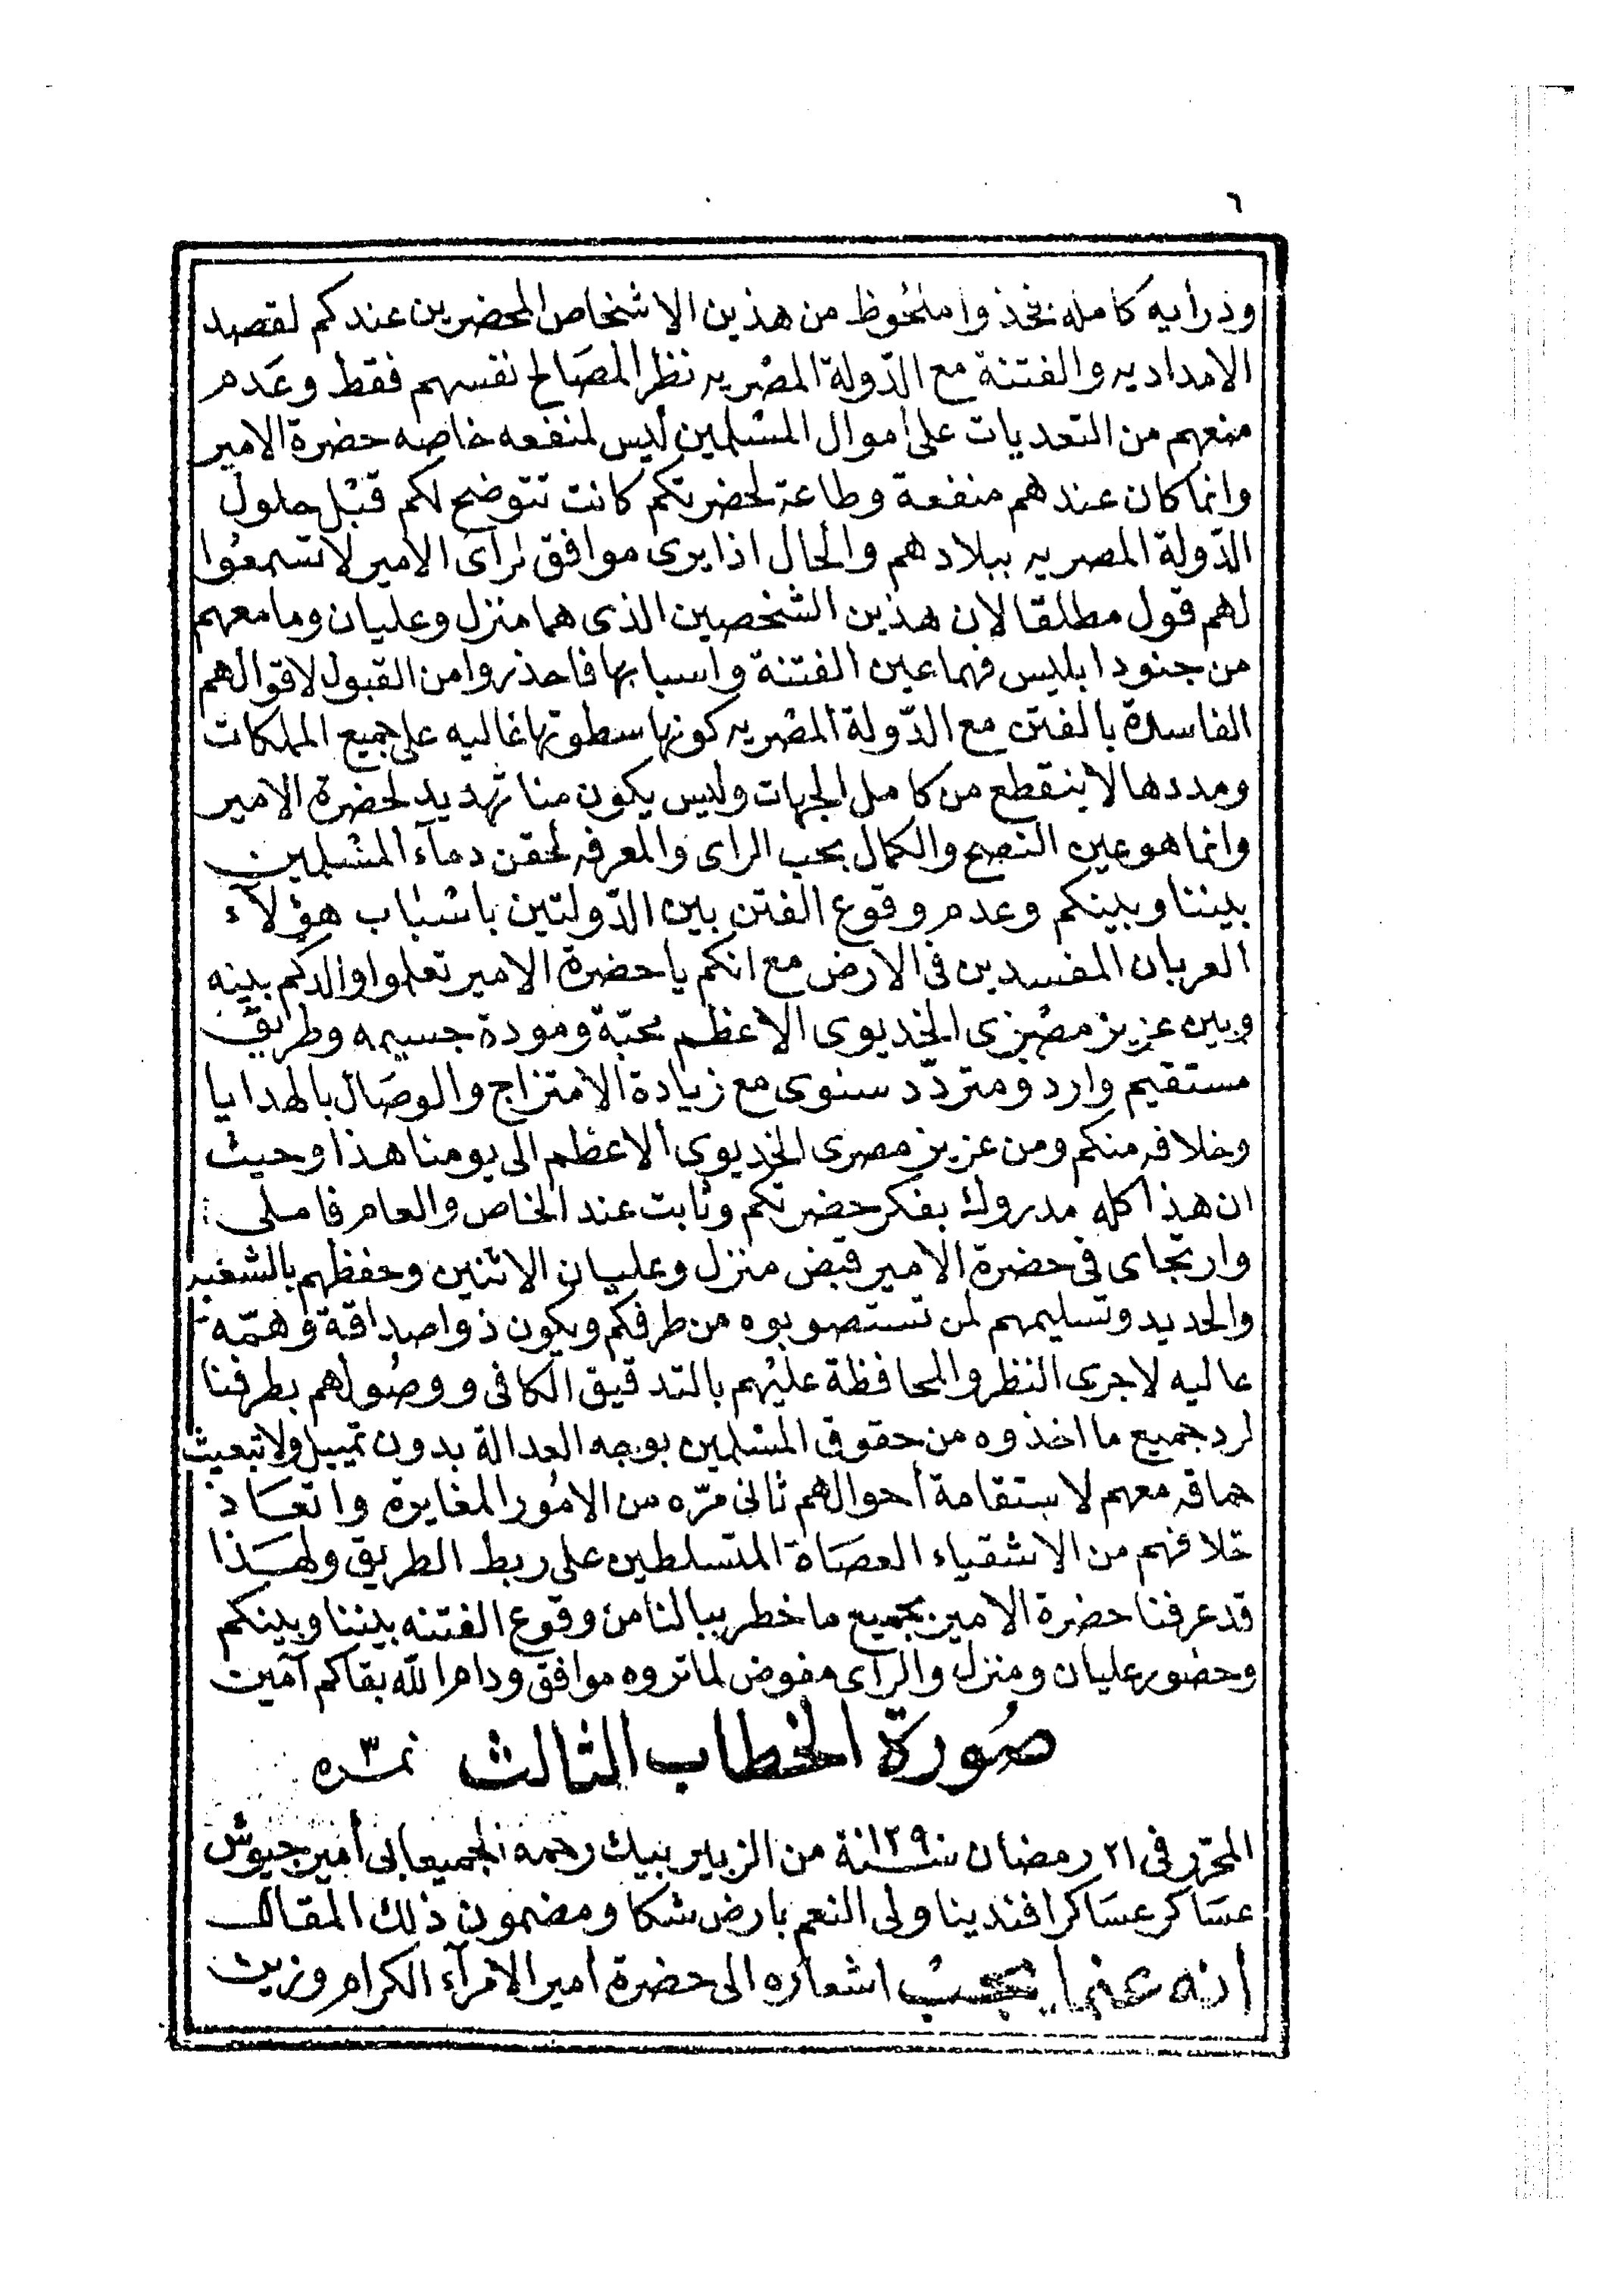 ٦
ودرايه كامله فخذوا ملحوظ من هذين الاشخاص المحضرين عندكم لقصد
الامداديه والفتنة مع الدّولة المصريه نظرالمصَالح نفسهم فقط وعَدم
منعهم من التعديات على أموال المسلمين ليس لمنفعه خاصه حضرة الامير
وانما كان عندهم منفعة وطاعة لحضرتكم كانت تتوضح لكم قبْل حلول
الدّولة المصريه ببلادهم والحال اذا يرى موافق لرآى الامير لا تسمعُوا
لهم قول مطلقا لان هذين الشخصين الذى هما منزل وعليان وما معهم
من جنود ابليس فهما عين الفتنة واسبابها فاحذروا من القبول لاقوالهم
الفاسدة بالفتن مع الدّولة المصريه كونها سطوتها غاليه على جميع المملكات
ومددها لا ينقطع من كامل الجهات وليس يكون منا تهديد لحضرة الامير
وانما هو عين النصح والكمال بحب الراى والمعرفه لحقن دمآء المسْلمين
بيننا وبينكم وعدم وقوع الفتن بين الدّولتين باسْبَاب هؤلآء
العربان المفسدين فى الارض مع انكم يا حضرة الامير تعلموا والدكم بينه
وبين عزيز مصْرى الخديوى الاعظم محبّة ومودة جسيمه وطريق
مستقيم وارد ومتردّد سنوى مع زيادة الامتزاج والوصَال بالهدايا
وخلافه منكم ومن عزيز مصرى الخديوى الاعظم الى يومنا هذا وحيث
ان هذا كله مدروك بفكر حضرتكم وثابت عند الخاص والعام فاملى
وارتجاى فى حضرة الامير قبض منزل وعليان الاثنين وحفظهم بالشعبه
والحديد وتسليمهم لمن تستصوبوه من طرفكم ويكون ذو اصداقة وهمّه
عاليه لاجرى النظر والمحافظة عليْهم بالتدقيق الكافى ووصُولهم بطرفنا
لرد جميع ما اخذوه من حقوق المسلمين بوجه العدالة بدون تمييل ولا تبعيث
حماقه معهم لاستقامة أحوالهم ثانى مرّه من الامُور المغايرة واتعَاد
خلافهم من الاشقياء العصَاة المتسلطين على ربط الطريق ولهَذا
قد عرفنا حضرة الامير بجميع ما خطر ببالنا من وقوع الفتنه بيننا وبينكم
وحضور عليان ومنزل والرآى مفوض لما تروه موافق ودام الله بقاكم آمين
صُورة الخطاب الثالث نمره ٣
المحرّر فى ٢١ رمضان سنة ١٢٩٠ من الزبير بيك رحمه الجميعابى أمير جيوش
عسَاكر عسَاكر افندينا ولى النعم بارض شكا ومضمون ذلك المقال
أنه عنما يجبُ اشعاره الى حضرة أمير الامرآء الكرام وزين